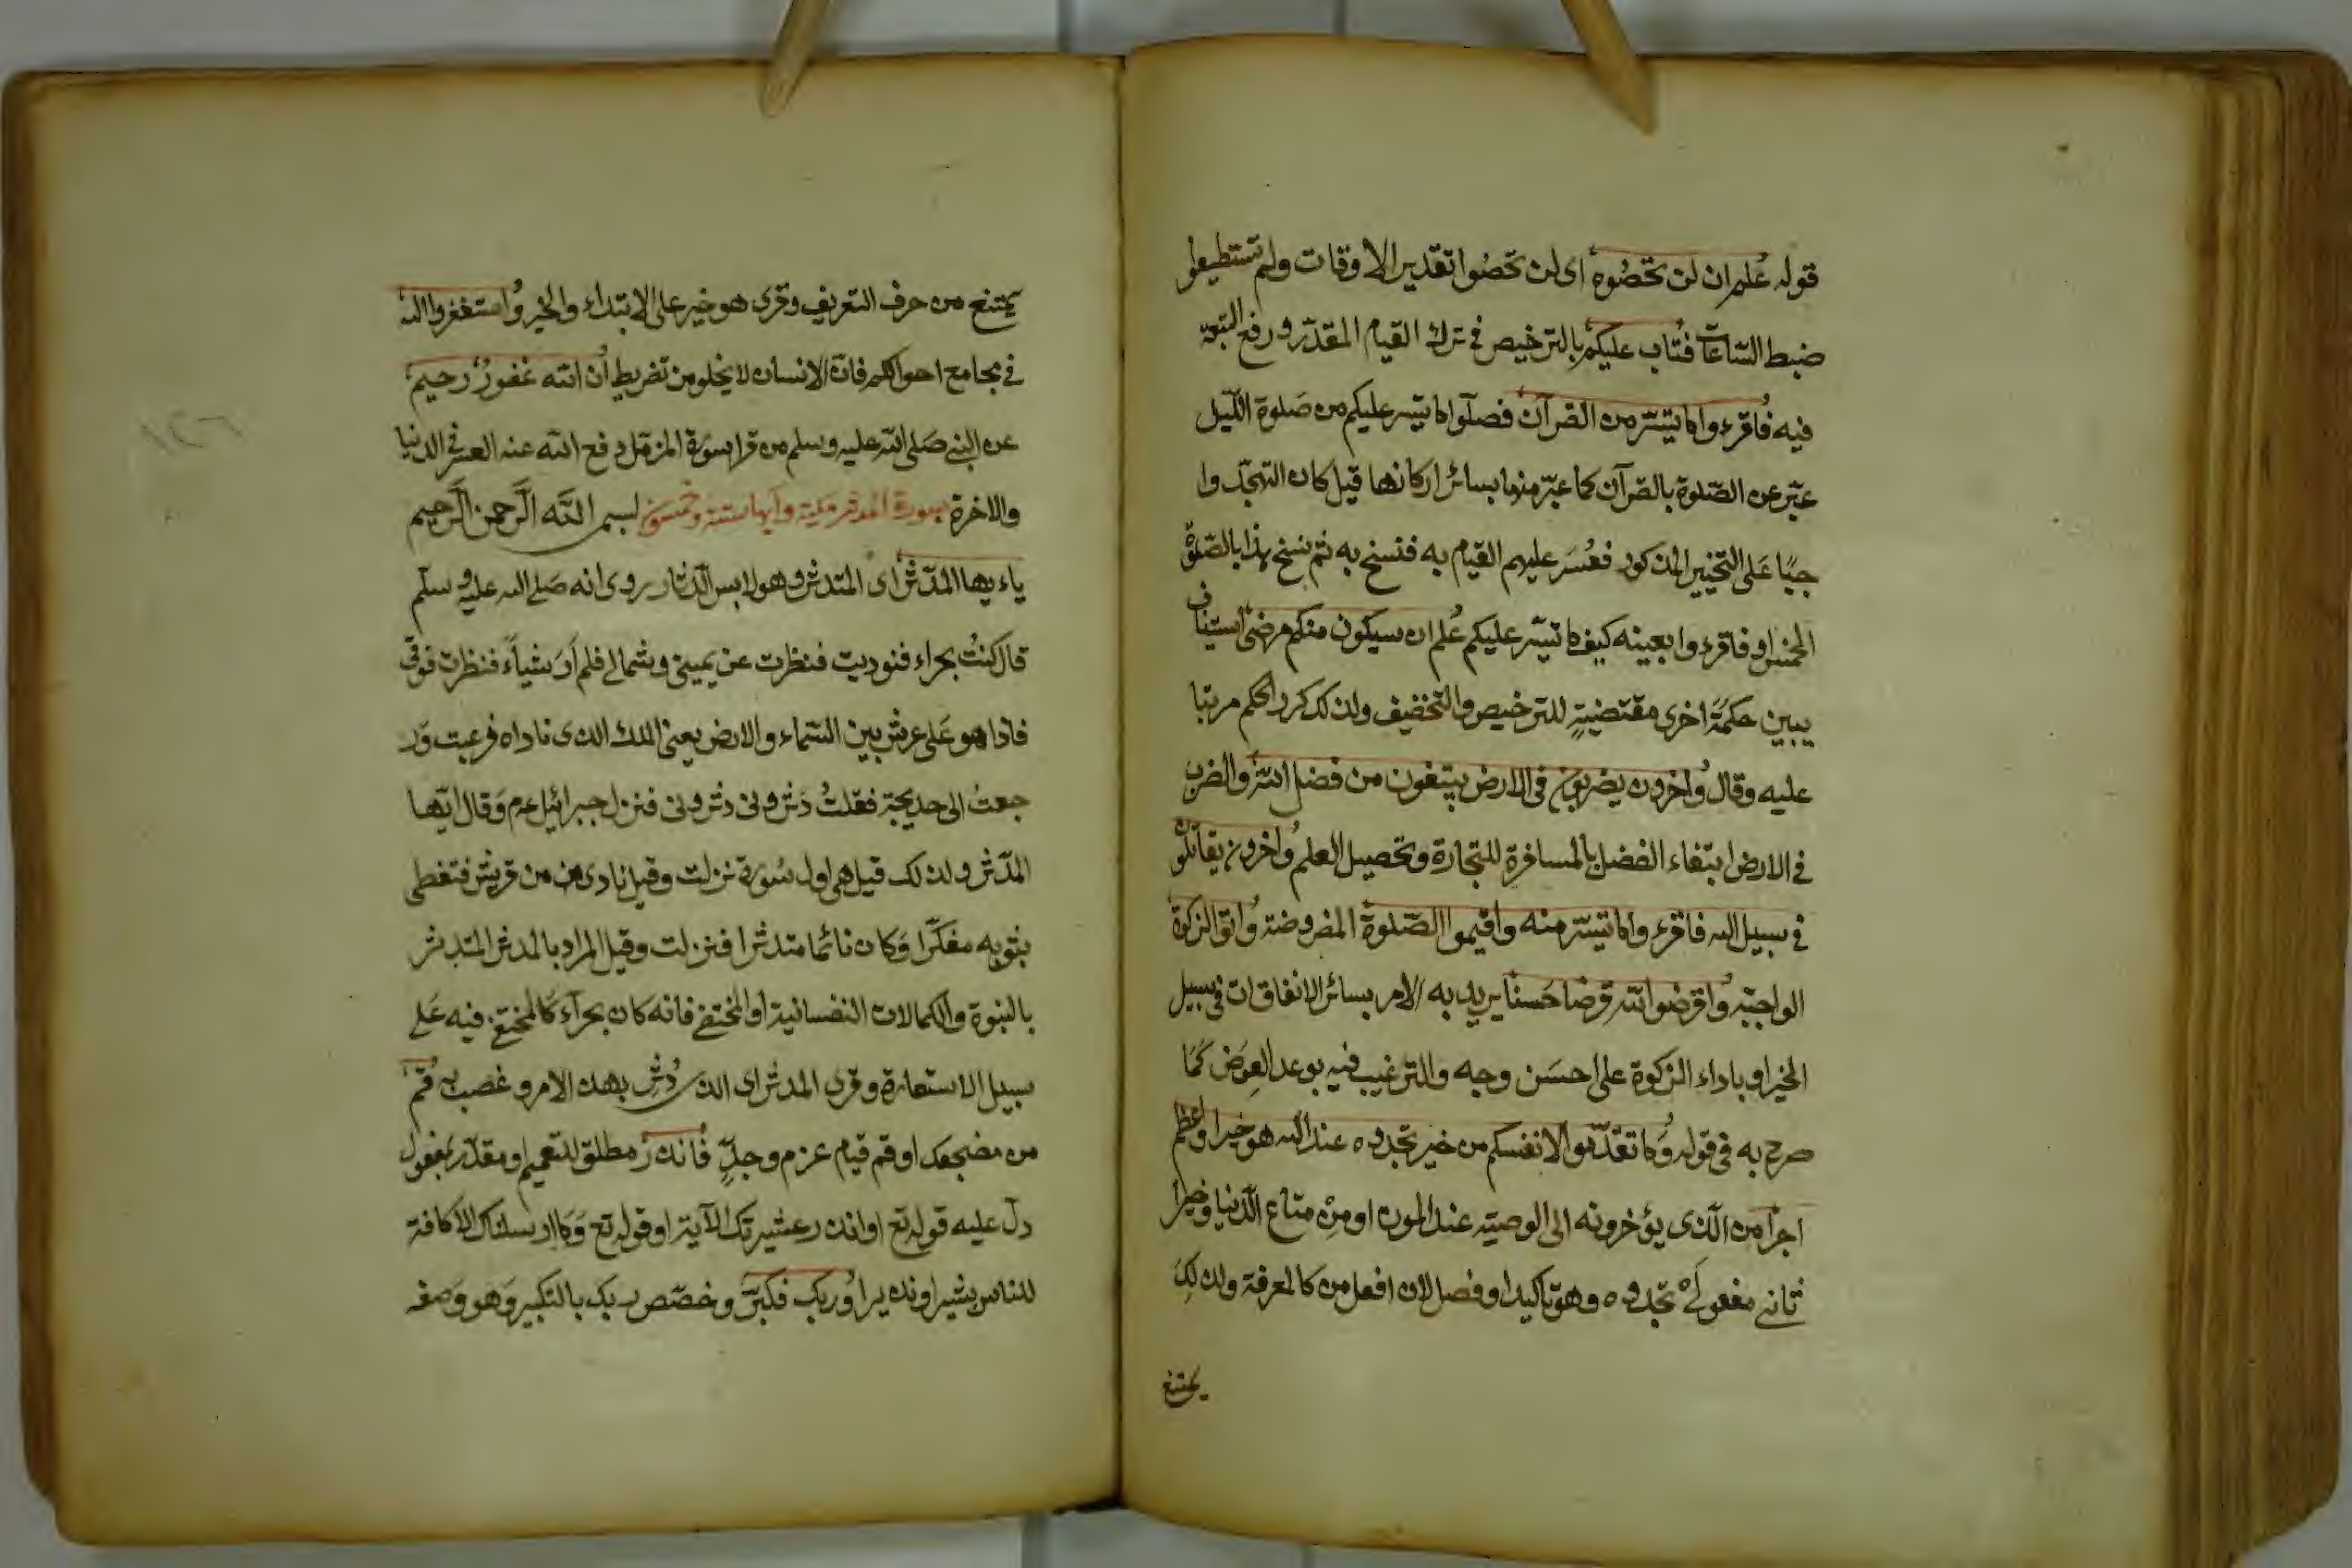 قوله علم ان لن تحصوه اى لن تحصوا تقدير الاوقات ولم تستطيعوا
ضبط الساعات فتاب عليكم بالترخيص في ترك القيام المقدّر ورفع التبعة
فيه فاقرءوا ما تيسّر من القرآن فصلّوا ما تيسر عليكم من صَلوة اللّيل
عبّر عن الصّلوة بالقرآن كما عبّر عنها بسائر اركانها قيل كان التهجّد وا
جبًا عَلى التخيير المذكور فعُسَر عليهم القيام به فنسخ به ثم نسخ هذا بالصّلوة
الخمس او فاقرءوا بعينه كيف ما تيسّر عليكم عُلم ان سيكون منكم مرضى استيناف
يبين حكمةً اخرى مقتضيةٍ للترخيص والتخفيف ولذلك كرر الحكم مرتبا
عليه وقال وَاخرون يضربون فى الارض يبتغون من فضل الله والضرب
في الارض ابتغاء الفضل بالمسافرة للتجارة وتحصيل العلم وَاخرون يقاتلون
في سبيل الله فاقرءوا ما تيسّر منه واقيموا الصّلوة المفروضة وَاتوا الزكوة
الواجبة وَاقرضوا الله قرضا حَسنا يريد به الامر بسائر الانفاقات في سبيل
الخير او باداء الزكوة على احسَن وجه والترغيب فيه بوعد العِوَض كَمَا
صرح به في قوله وَما تقدّموا لانفسكم من خير تجدوه عند الله هو خيرا واعظم
اجرًا من الّذى يؤخرونه الى الوصية عند الموت او مِنْ متاع الدّنيا وخيرًا
ثانى مفعولَىْ تجدوه وهو تاكيد او فصل لان افعل من كالمعرفة ولذلِكَ
يمتنع
يمتنع من حرف التعريف وقرى هو خير على الابتداء والخبر وَاستغفروا الله
في مجامع احوالكم فانّ الانسان لا يخلو من تفريط اُن الله غَفورٌ رحيم
عن النبي صَلى الله عليه وسلم من قرا سورة المزمّل دفع الله عنه العسر في الدنيا
والاخرة سورة المدثر مكية وآيها ستة وخمسون بسم اللَّه الرَّحمن الرَّحيم
ياءيها المدّثر اى المتدثر وهو لابس الّدثار روى انه صَلى الله عليه وسلّم
قال كنتُ بحراء فنوديت فنظرت عن يمينى وشمالى فلم اَرَ شياًء فنظرت فوقى
فاذا هو عَلى عرش بين السّماء والارض يعنى الملك الذى ناداه فرعبت وَر
جعتُ الى خديجة فقلتُ دَثرونى دثرونى فنزل جبرائيل عم وَقال ايّها
المدّثر ولذلك قيل هى اول سُورة نزلت وقيل تاذى من قريش فتغطى
بثوبه مفكّرا وَكان نائما متدثرا فنزلت وقيل المراد بالمدثر المتدثر
بالنبوة والكمالات النفسانية او المختفى فانه كان بحرآء كَالمختفى فيه عَلى
سبيل الاستعارة وقرى المدثر اى الذى دُثِر بهذا الامر وعصب به قُم
من مضجعك او قم قيام عزم وجدٍّ فَانذرْ مطلق للتعميم او مقدّر بمفعول
دلّ عليه قوله تع او انذر عشيرتك الآية او قوله تع وَما ارسلناك الا كافة
للناس بشيرا ونذيرا وَربك فكبّر وخصّص ربك بالتكبير وَهو وَصفه